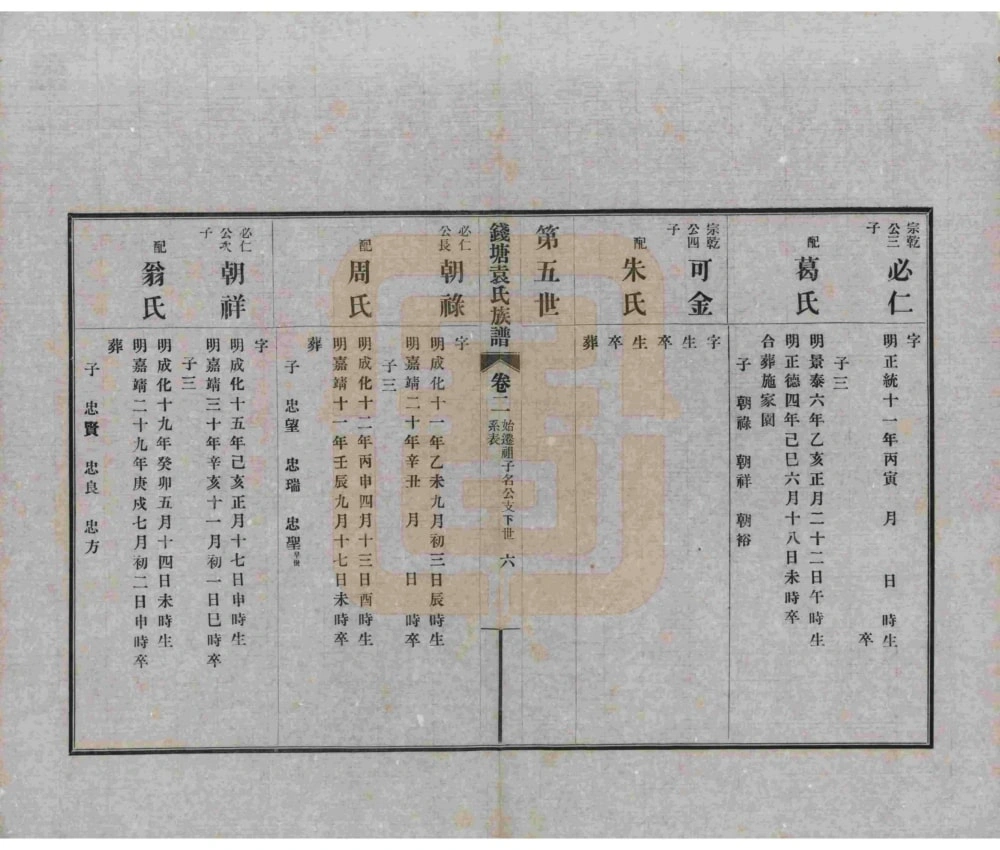 宗乾
公三
子
必仁
字
明正統十一年丙寅 月 日 時生
卒
子三
配
葛氏
明景泰六年乙亥正月二十二日午時生
明正德四年己巳六月十八日未時卒
合葬施家園
子 朝祿 朝祥 朝裕
宗乾
公四
子
可金
字
生
卒
配
朱氏
生
卒
葬
第五世
錢塘袁氏族譜
卷二
始遷祖子名公支下世
系表
六
必仁
公長
朝祿
字
明成化十一年乙未九月初三日辰時生
明嘉靖二十年辛丑 月 日 時卒
子三
配
周氏
明成化十二年丙申四月十三日酉時生
明嘉靖十一年壬辰九月十七日未時卒
葬
子 忠望 忠瑞 忠聖早世
必仁
公次
子
朝祥
字
明成化十五年己亥正月十七日申時生
明嘉靖三十年辛亥十一月初一日巳時卒
子三
配
翁氏
明成化十九年癸卯五月十四日未時生
明嘉靖二十九年庚戌七月初二日申時卒
葬
子 忠賢 忠良 忠方